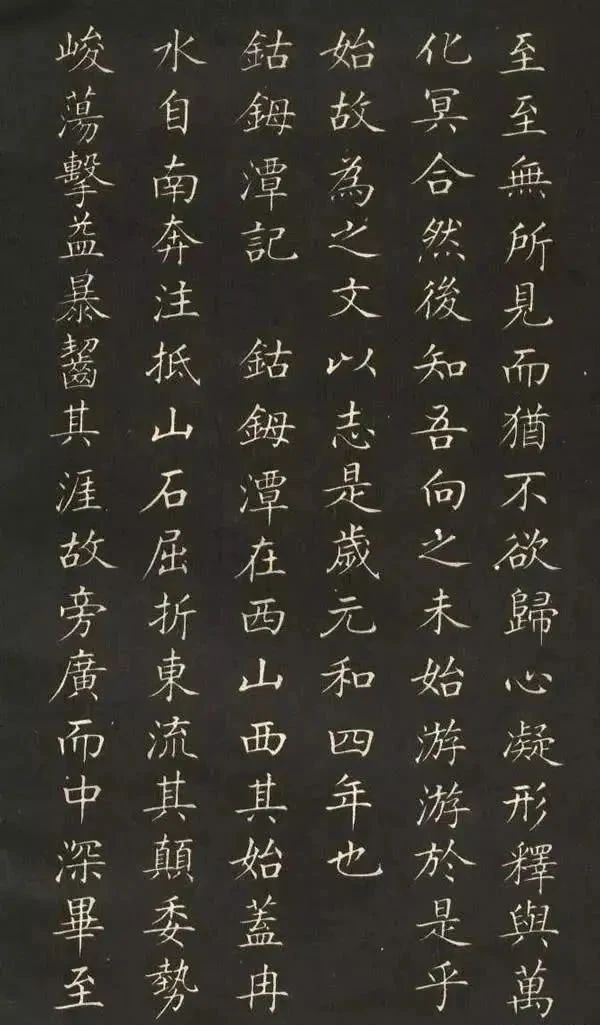 至至無所見而猶不欲歸心凝形釋與萬
化冥合然後知吾向之未始游游於是乎
始故為之文以志是歲元和四年也
鈷鉧潭記 鈷鉧潭在西山西其始蓋冉
水自南奔注抵山石屈折東流其顛委勢
峻蕩擊益暴齧其涯故旁廣而中深畢至